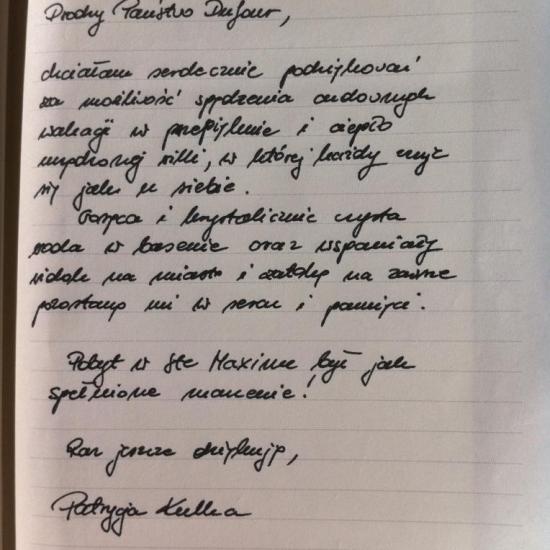 Drodzy Państwo Dufour,
chciałam serdecznie podziękować
za możliwość spędzenia cudownych
wakacji w przepięknie i ciepło
urządzonej willi, w której każdy czuje
się jak u siebie.
Gorąca i krystalicznie czysta
woda w basenie oraz wspaniały
widok na miasto i zatokę na zawsze
pozostaną mi w sercu i pamięci.
Pobyt w Ste Maxime był jak
spełnione marzenie!
Raz jeszcze dziękuję,
Patrycja Kulka